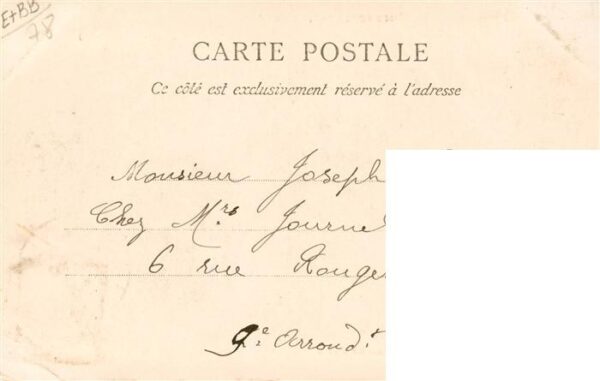 E+BB
78
CARTE POSTALE
Ce côté est exclusivement réservé à l'adresse
Monsieur Joseph
Chez M.rs Journe
6 rue Rouge
9.e Arrond.t